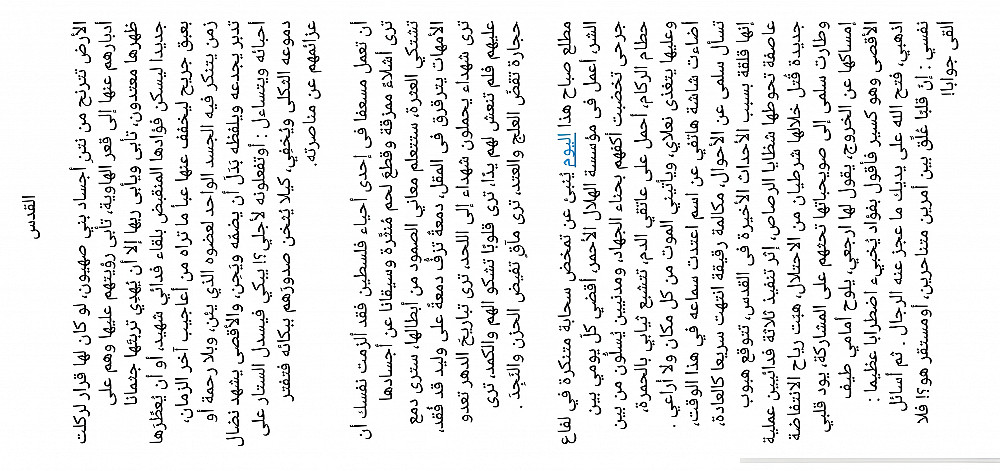 القدس
الأرض تترنح من نتن أجساد بني صهيون، لو كان لها قرار لركلت
أدبارهم عنها إلى قعر الهاوية، تأبى رؤيتهم عليها وهم على
ظهرها معتدون، تأبى ويأبى ربها إلا أن يُهيئ تربتها جثمانا
جديدا ليسكن فؤادها المنقبض بلقاء فدائي شهيد، أو أن يُعطّرها
بعبق جريح ليخفف عنها عبأ ما تراه من أعاجيب آخر الزمان،
زمن يتنكر فيه الجسد الواحد لعضوه الذي يئن، وبلا رحمة أو
تدبر يجدعه ويلفظه بَدَلَ أن يضمّه ويحن، والأقصى يشهد نضال
أحبائه ويتساءل : أوتفعلونه لأجلي؟! يبكي فيسدل الستار على
دموعه الثكلى ويُخفي، كيلا يُثخن صدورَهم ببكائه فتفتر
عزائمهم عن مناصرته.
أن تعمل مسعفا في إحدى أحياء فلسطين فقد ألزمت نفسك أن
ترى أشلاءً ممزقة وقطع لحم منثرة وسيقانا عن أجسادها
تشتكي العثرة، ستتعلم معاني الصمود من أبطالها، سترى دمع
الأمهات يترقرق في المقل، دمعةٌ تزفُّ دمعةً على وليد قد فُقد،
ترى شهداء يحملون شهداء إلى اللحد، ترى تباريحَ الدهر تعدو
عليهم فلم تنعش لهم يدًا، ترى قلوبًا تشكو الهم والكمد، ترى
حجارة تقضّ العلج والعتد، ترى مآقٍ تفيض الحزن والنجد .
مطلع صباح هذا اليوم يُنبئ عن تمخض سحابة متنكرة في لفاع
الشر، أعمل في مؤسسة الهلال الأحمر، أقضي كلّ يومي بين
جرحى تخضبت أكفهم بحناء الجهاد، ومدنيين يُسلّون من بين
حطام الركام، أحمل على عاتقي الدم، تتشبع ثيابي بالحمرة،
وعليها يتغذى نعلاي، ويأتيني الموت من كل مكان ولا أراعي .
أضاءت شاشة هاتفي عن اسم اعتدت سماعه في هذا الوقت،
تسأل سلمى عن الأحوال، مكالمة رقيقة انتهت سريعا كالعادة،
إنها قلقة بسبب الأحداث الأخيرة في القدس، تتوقع هبوب
عاصفة تحوطها شظايا الرصاص، إثر تنفيذ ثلاثة فدائيين عملية
جديدة قتل خلالها شرطيان من الاحتلال، هبت رياح الانتفاضة
وطارت سلمى إلى صويحباتها تحثهم على المشاركة، يود قلبي
إمساكها عن الخروج، يقول لها ارجعي، يلوح أمامي طيف
الأقصى وهو كسير فأقول بفؤاد يُخبي اضطرابا عظيما :
اذهبي، فتح الله على يديك ما عجز عنه الرجال . ثم أسائل
نفسي : إنّ قلبًا عُلّق بين أمرين متناحرين، أومستقر هو؟! فلا
ألقى جوابا!